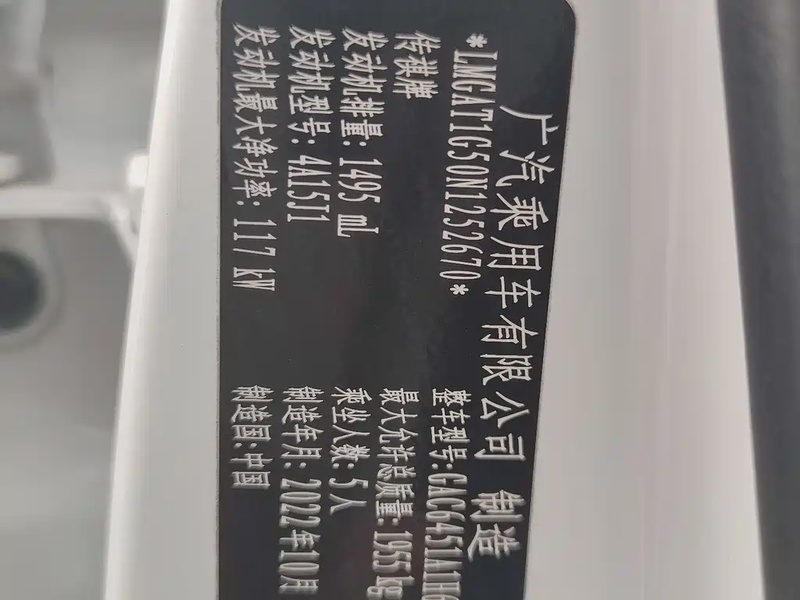 广汽乘用车有限公司 制造
*LMGAT1G50N1252670*
整车型号:GAC6451A1H6
传祺牌
最大允许总质量:1955kg
发动机排量:1495 mL
乘坐人数:5人
发动机型号:4A15J1
制造年月:2022年10月
发动机最大净功率:117 kW
制造国:中国